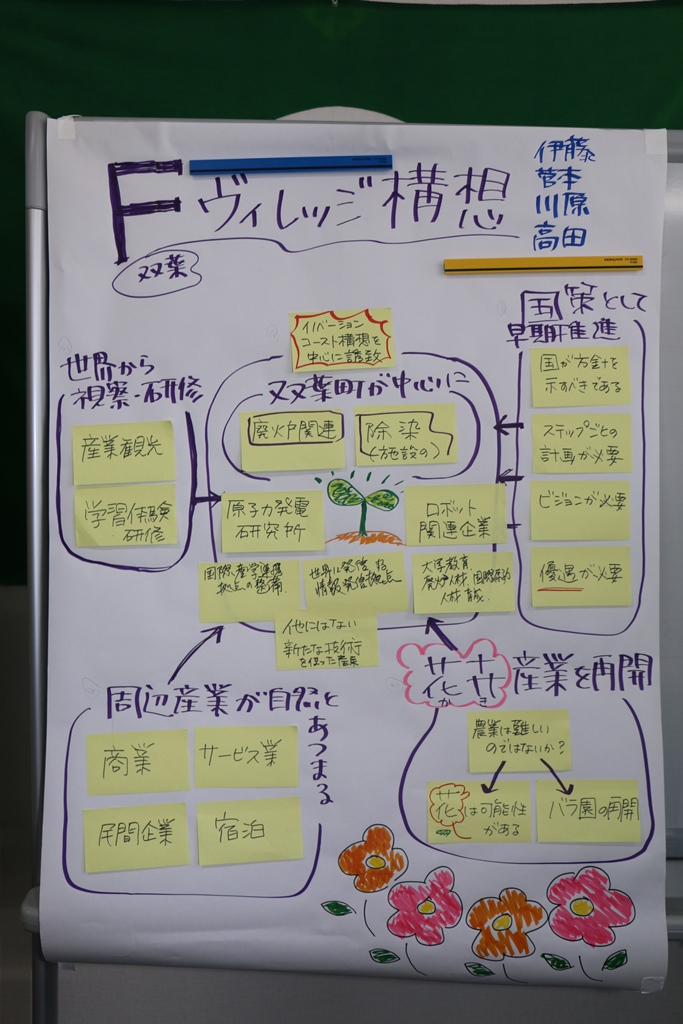 Fヴィレッジ構想
双葉
伊藤
菅本
川原
高田
国策として
早期推進
国が方針を
示すべきである
ステップごとの
計画が必要
ビジョンが必要
優遇が必要
世界から
視察・研修
産業観光
学習体験
研修
イノベーション
コースト構想を
中心に誘致
双葉町が中心に
廃炉関連
除染
(施設の)
原子力発電
研究所
ロボット
関連企業
国際産学連携
拠点の整備
世界に発信する
情報発信拠点
大学教育
廃炉人材、国際原力
人材育成
他にはない
新たな技術
を使った産業
周辺産業が自然と
あつまる
商業
サービス業
民間企業
宿泊
花卉産業を再開
かき
農業は難しい
のではないか?
花は可能性
がある
バラ園の再開